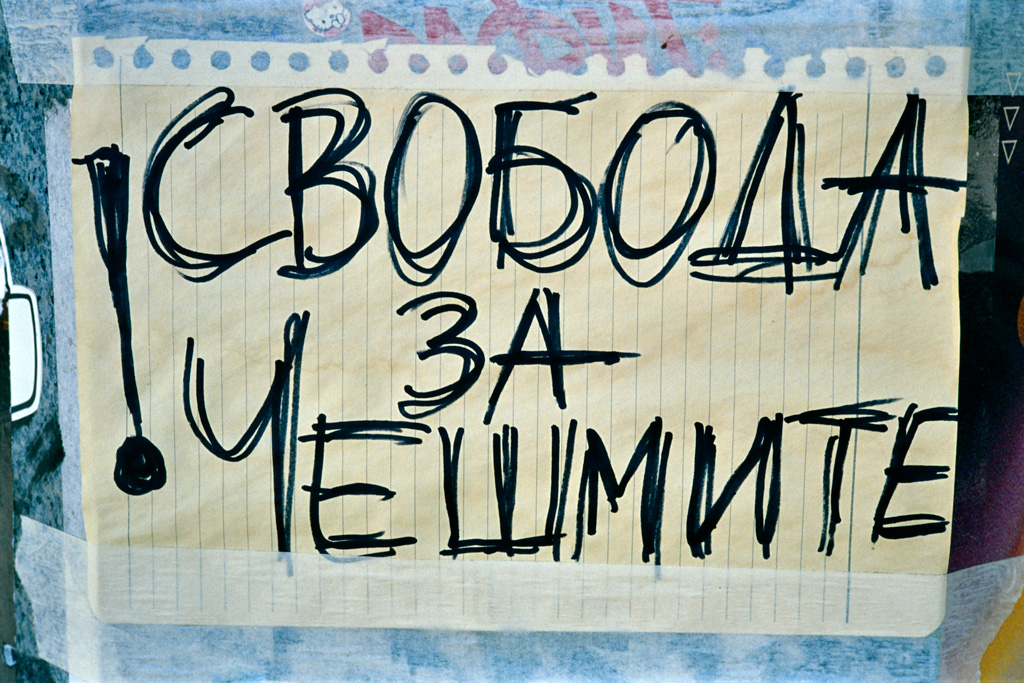 ! СВОБОДА
ЗА
ЧЕШМИТЕ